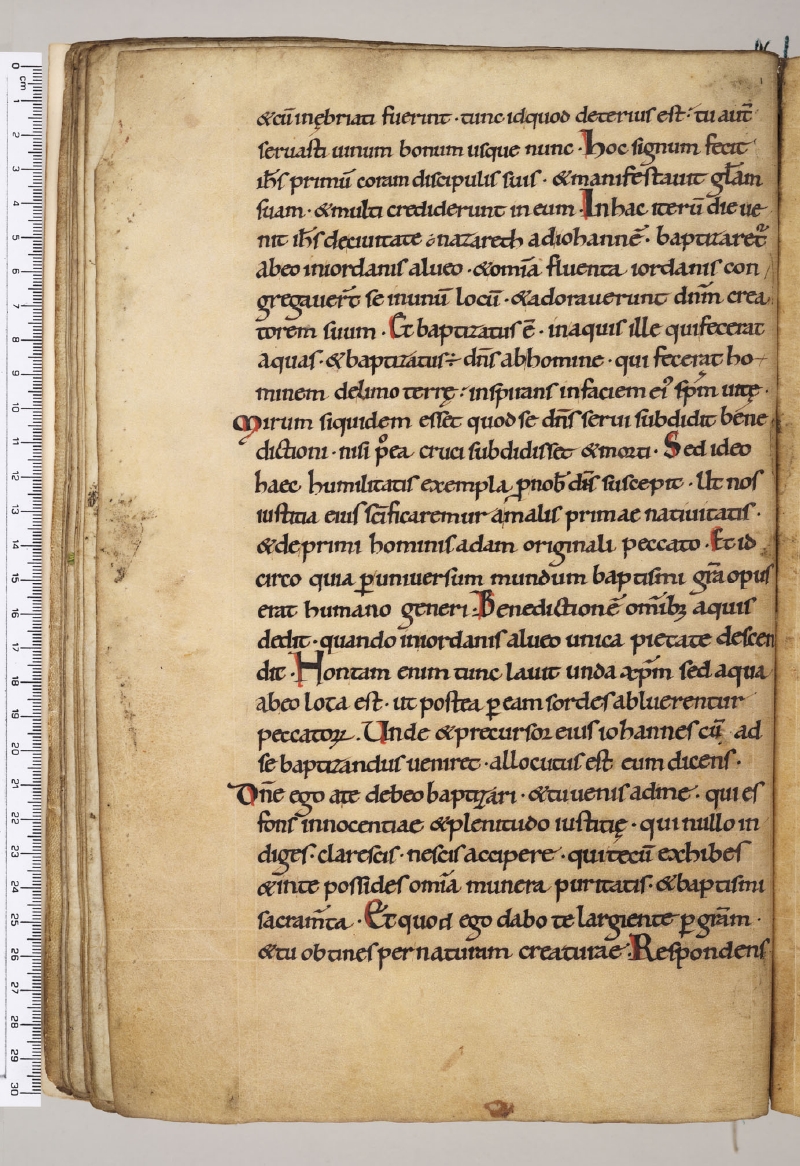 &cū inębriati fuerint · tunc id quod deterius est : tu aut̄
seruasti uinum bonum usque nunc · hoc signum fecit
ih̄s primū coram discipulis suis · & manifestauit gl̄am
suam · & multi crediderunt in eum · In hac iterū die ue
nit ih̄s de ciuitate nazareth ad iohannē · baptizaret᷑
ab eo in iordanis alueo · & om̄ia fluenta iordanis con
gregauer̄t se in unū locū · & adorauerunt dn̄m crea
torem suum · Et baptizatus ē · in aquis ille qui fecerat
aquas · & baptizatus ÷ dn̄s ab homine · qui fecerat ho
minem de limo terrę : inspirans in faciem ei᾽ sp̄m uitę ·
Mirum siquidem esset quod se dn̄s serui subdidit bene
dictioni · nisi p̊ea cruci subdidisset & morti · Sed ideo
haec humilitatis exempla ꝓ nob̄ dn̄s suscepit · Ut nos
iustitia eius sc̄ificaremur a malis primae natiuitatis ·
& de primi hominis adam originali peccato · Et id
circo quia ꝑ uniuersum mundum baptismi gr̄a opus
erat humano generi · Benedictionē om̄ib; aquis
dedit · quando in iordanis alueo unica pietate descen
dit · Hon tam enim tunc lauit unda xp̄m sed aqua
ab eo lota est · ut postea ꝑ eam sordes abluerentur
peccatoꝝ . Unde & precursor eius iohannes cū ad
se baptizandus ueniret · allocutus est eum dicens ·
Dn̄e ego a te debeo baptizari · & tu uenis ad me · qui es
fons innocentiae & plenitudo iustitię · qui nullo in
diges · clarescis · nescis accipere · qui tecū exhibes
& in te possides om̄ia munera puritatis · & baptismi
sacram̄ta · Et quod ego dabo te largiente ꝑ gr̄am ·
& tu obtines per naturam creaturae · Respondens